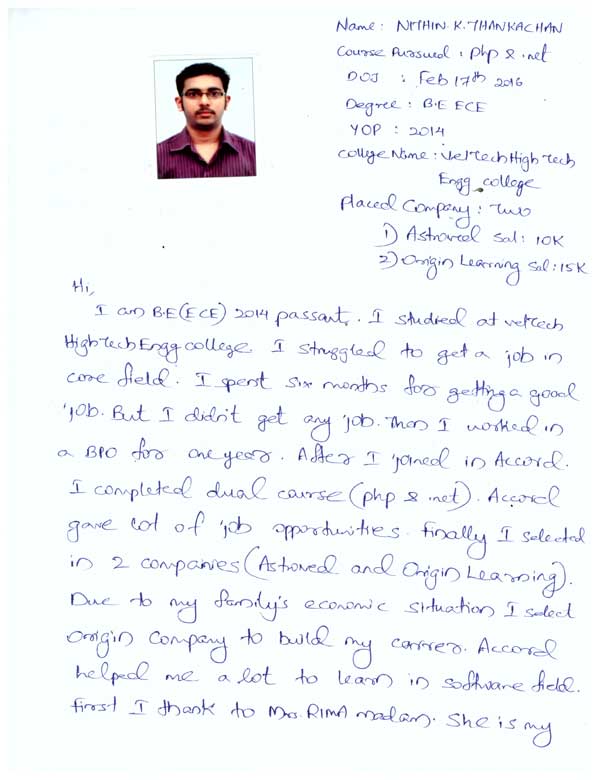 Name: NITHIN K. THANKACHAN
Course Pursued: php & .net
DOJ : Feb 17th 2016
Degree : B.E ECE
YOP : 2014
College Name: Veltech High Tech
Engg college
Placed Company: Two
1) Astroved Sal: 10K
2) Origin Learning Sal: 15K
Hi,
I am B.E(ECE) 2014 passant. I studied at veltech
High Tech Engg college. I struggled to get a job in
core field. I spent six months for getting a good
job. But I didn't get any job. Then I worked in
a BPO for one year. After I joined in Accord.
I completed dual course (php & .net). Accord
gave lot of job opportunities. Finally I selected
in 2 companies (Astroved and Origin Learning).
Due to my family's economic situation I select
Origin Company to build my carrer. Accord
helped me a lot to learn in software field.
First I thank to Mrs. RIMA madam. She is my